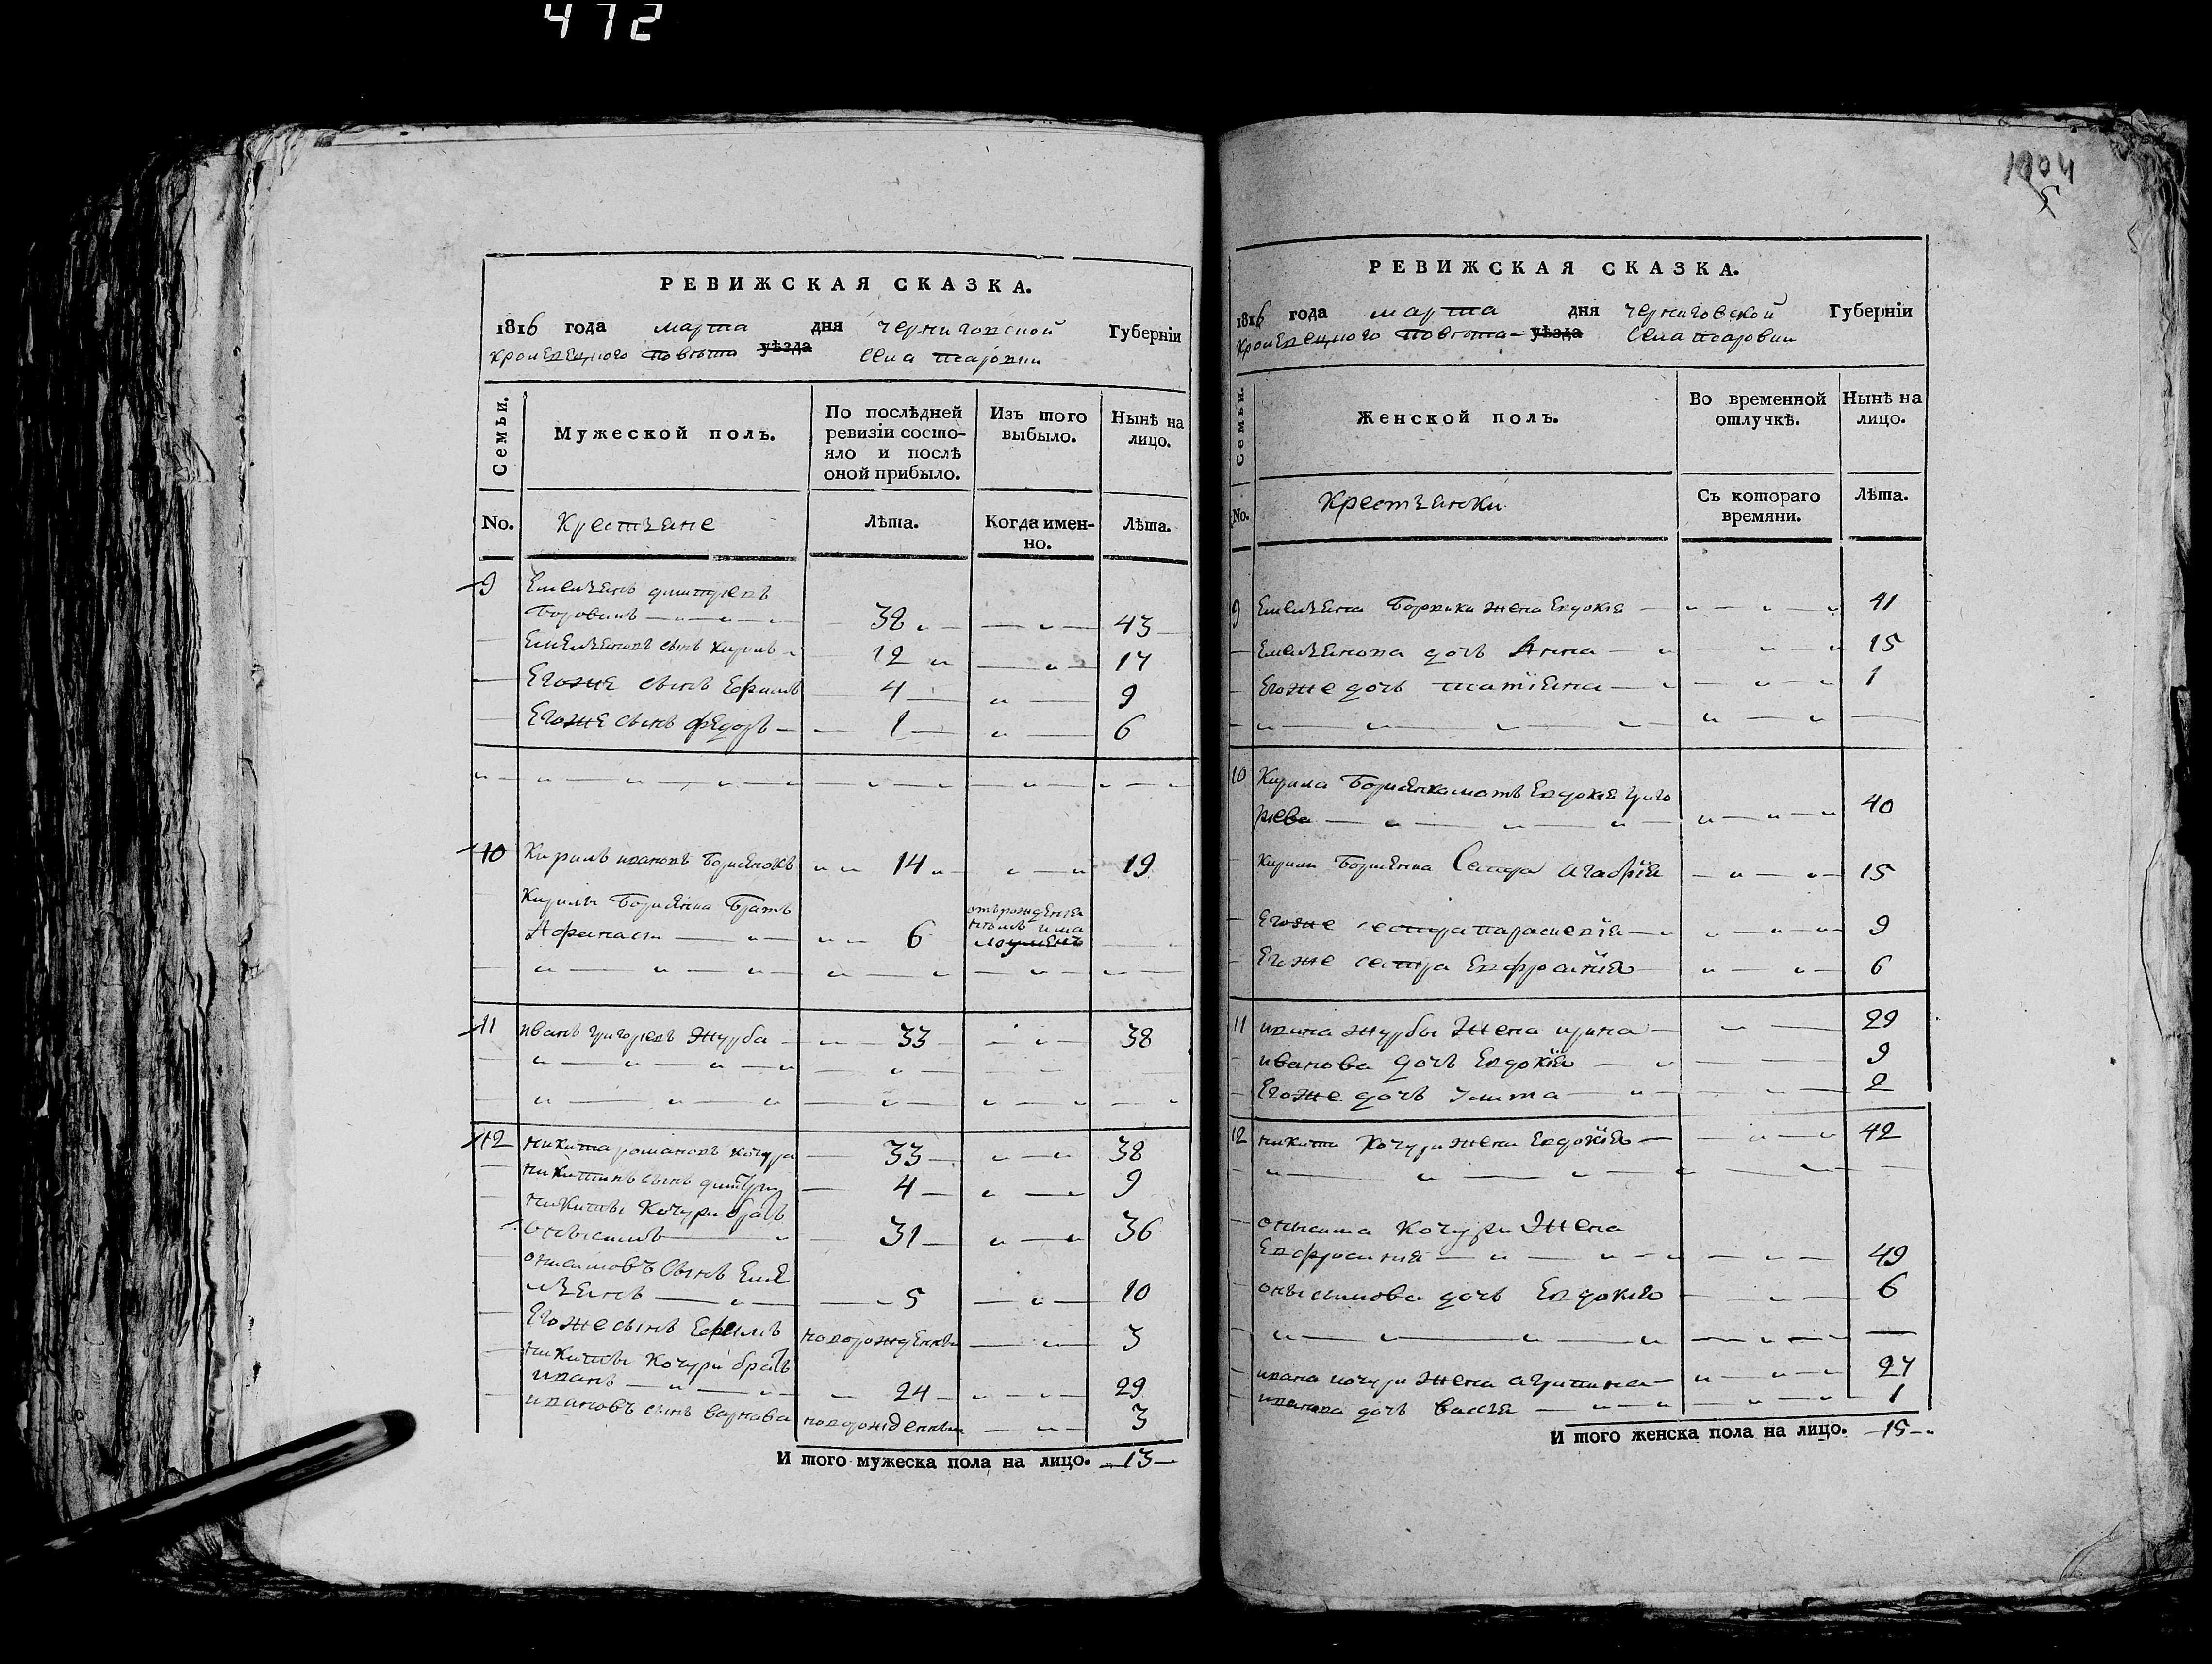 472
РЕВИЖСКАЯ СКАЗКА.
1816 года марта дня черниговской Губерніи
кролевецкого повѣта уѣзда села
Семьи.
Мужеской полъ.
По послѣдней ревизіи состо-
яло и послѣ
оной прибыло.
Изъ того
выбыло.
Нынѣ на
лицо.
No.
Крестьяне
Лѣта.
Когда имен-
но.
Лѣта.
9 Емельянъ
38 43
Емельяновъ сынъ Кирилъ 12 17
Егоже сынъ Ефимъ 4 9
Егоже сынъ Федоръ 1 6
10 Кирилъ Ивановъ 14 19
Кирилы братъ
6
11 иванъ григоревъ журба 33 38
12 никита романовъ кочура 33 38
никитинъ сынъ 4 9
никиты Кочури братъ
31 36
сынъ Еме
льянъ 5 10
Егоже сынъ новорожденны 3
никиты Кочури братъ
иванъ 24 29
ивановъ сынъ варнава новорожденны 3
И того мужеска пола на лицо. 13
1004
5
РЕВИЖСКАЯ СКАЗКА.
1816 года марта дня черниговской Губерніи
кролевецкого повѣта уѣзда села
Семьи.
Женской полъ.
Во временной
отлучкѣ.
Нынѣ на
лицо.
No.
Крестьянки
Съ котораго
времяни.
Лѣта.
9 Емельяна жена Евдокія 41
Емельянова дочь Анна 15
Егоже дочь татіяна 1
10 Кирила мать Евдокія григо
рева 40
Кирили сестра агафія 15
Егоже сестра параскевія 9
Егоже сестра Евфросинія 6
11 ивана журбы жена ирина 29
иванова дочь Евдокія 9
Егоже дочь улита 2
12 никити Кочури жена Евдокія 42
онисима Кочури жена
Евфросинія 49
онисимова дочь Евдокія 6
ивана кочури жена агрипина 27
иванова дочь 1
И того женска пола на лицо. 15